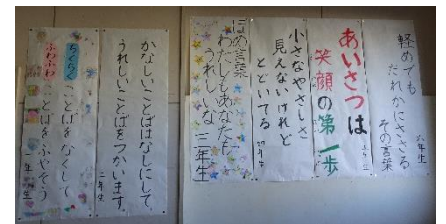 軽めでも
だれかにささる
その言葉
六年生
あいさつは
笑顔の第一歩
五年生
小さなやさしさ
見えないけれど
とどいてる
四年生
ほめ言葉
わたしもあなたも
うれしいな
三年生
かなしいことばはなしにして、
うれしいことばをつかいます。
二年生
ちくちく
ことばをなくして
ふわふわ
ことばをふやそう
一年生